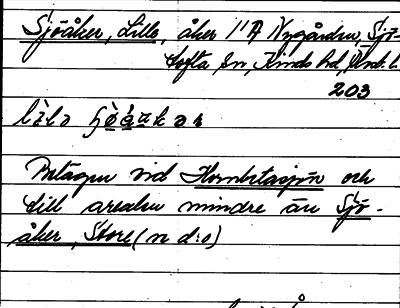 Sjöåker, Lilla, åker 11A Nygården, Sjö-
tofta sn, Kinds hd, Älvsb. l.
203
Belägen vid Hornbetasjön och
till arealen mindre än Sjö-
åker, Stora (n d:o)